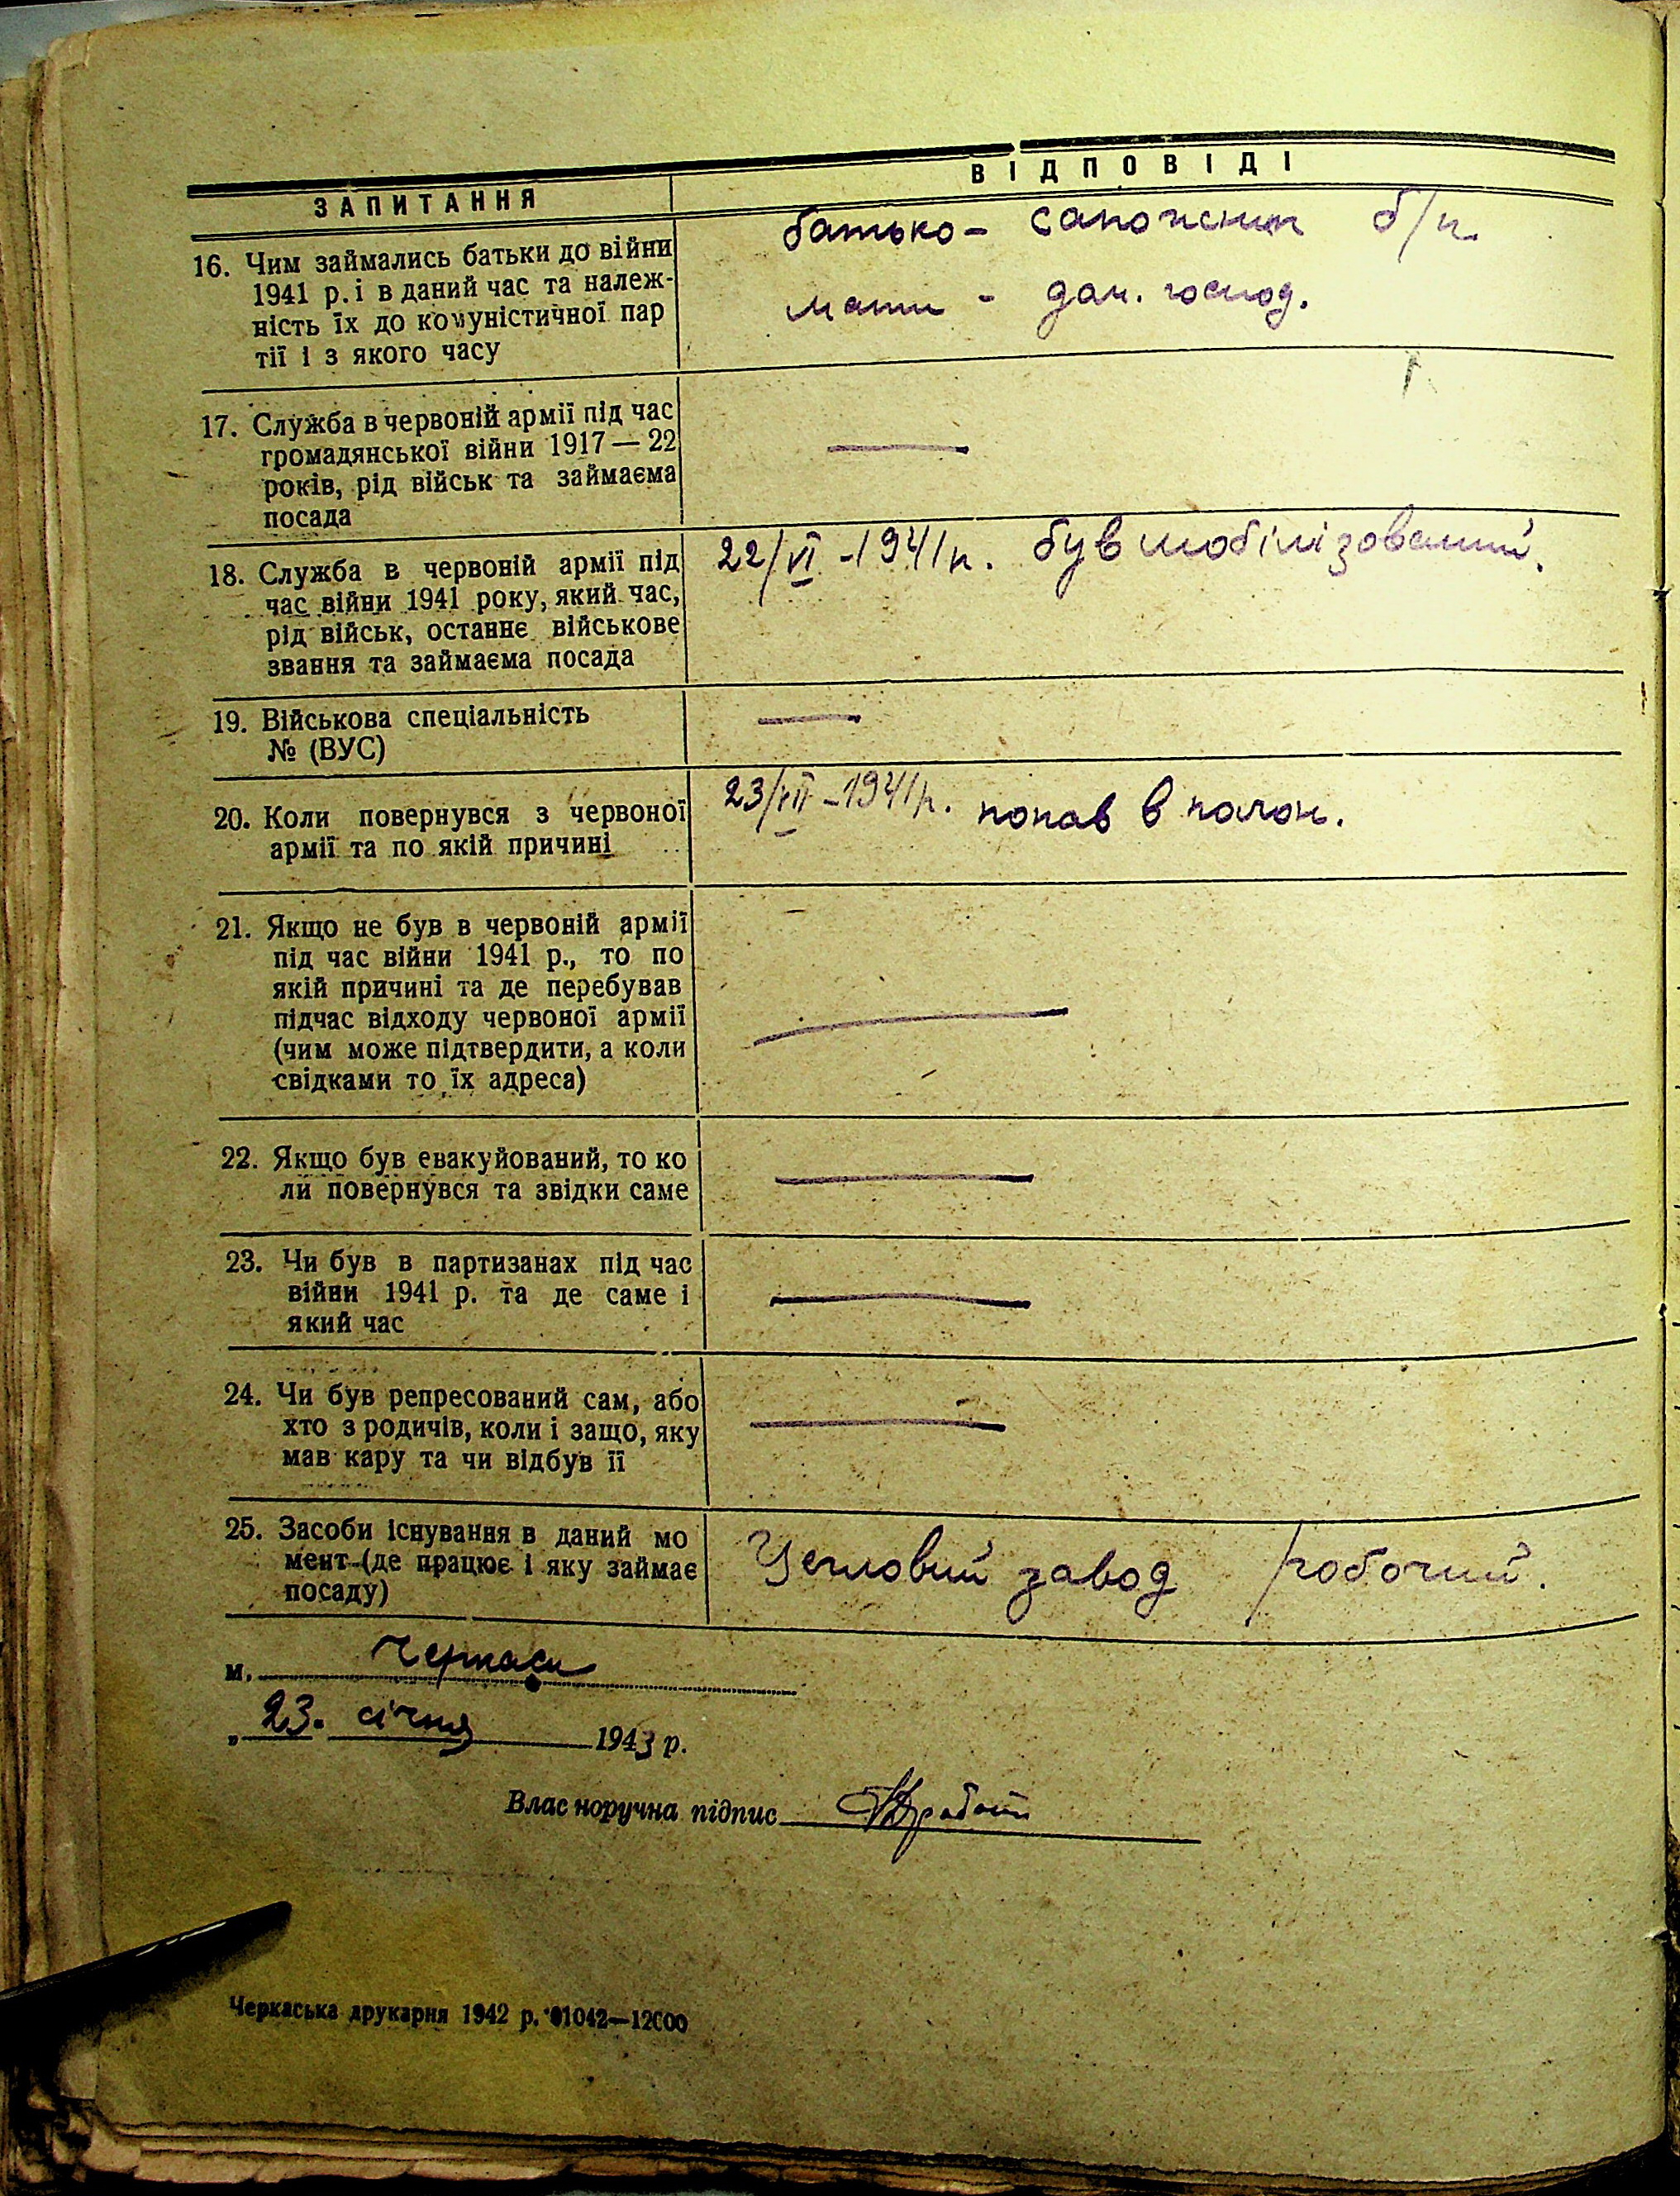 ЗАПИТАННЯ
ВІДПОВІДІ
16. Чим займались батьки до війни
1941 р. і в даний час та належ-
ність їх до комуністичної пар
тії і з якого часу
батько - сапожник б/п.
мати - дом. господ.
17. Служба в червоній армії під час
громадянської війни 1917 — 22
років, рід військ та займаєма
посада
—
18. Служба в червоній армії під
час війни 1941 року, який час,
рід військ, останнє військове
звання та займаєма посада
22/VI - 1941 р. був мобілізований.
19. Військова спеціальність
№ (ВУС)
—
20. Коли повернувся з червоної
армії та по якій причині
23/VII - 1941 р. попав в полон.
21. Якщо не був в червоній армії
під час війни 1941 р., то по
якій причині та де перебував
підчас відходу червоної армії
(чим може підтвердити, а коли
свідками то їх адреса)
—
22. Якщо був евакуйований, то ко
ли повернувся та звідки саме
—
23. Чи був в партизанах під час
війни 1941 р. та де саме і
який час
—
24. Чи був репресований сам, або
хто з родичів, коли і защо, яку
мав кару та чи відбув її
—
25. Засоби існування в даний мо
мент (де працює і яку займає
посаду)
Цегловий завод робочий.
м. Черкаси
„ 23. січня 1943 р.
Власноручна підпис
Черкаська друкарня 1942 р. 01042—12000